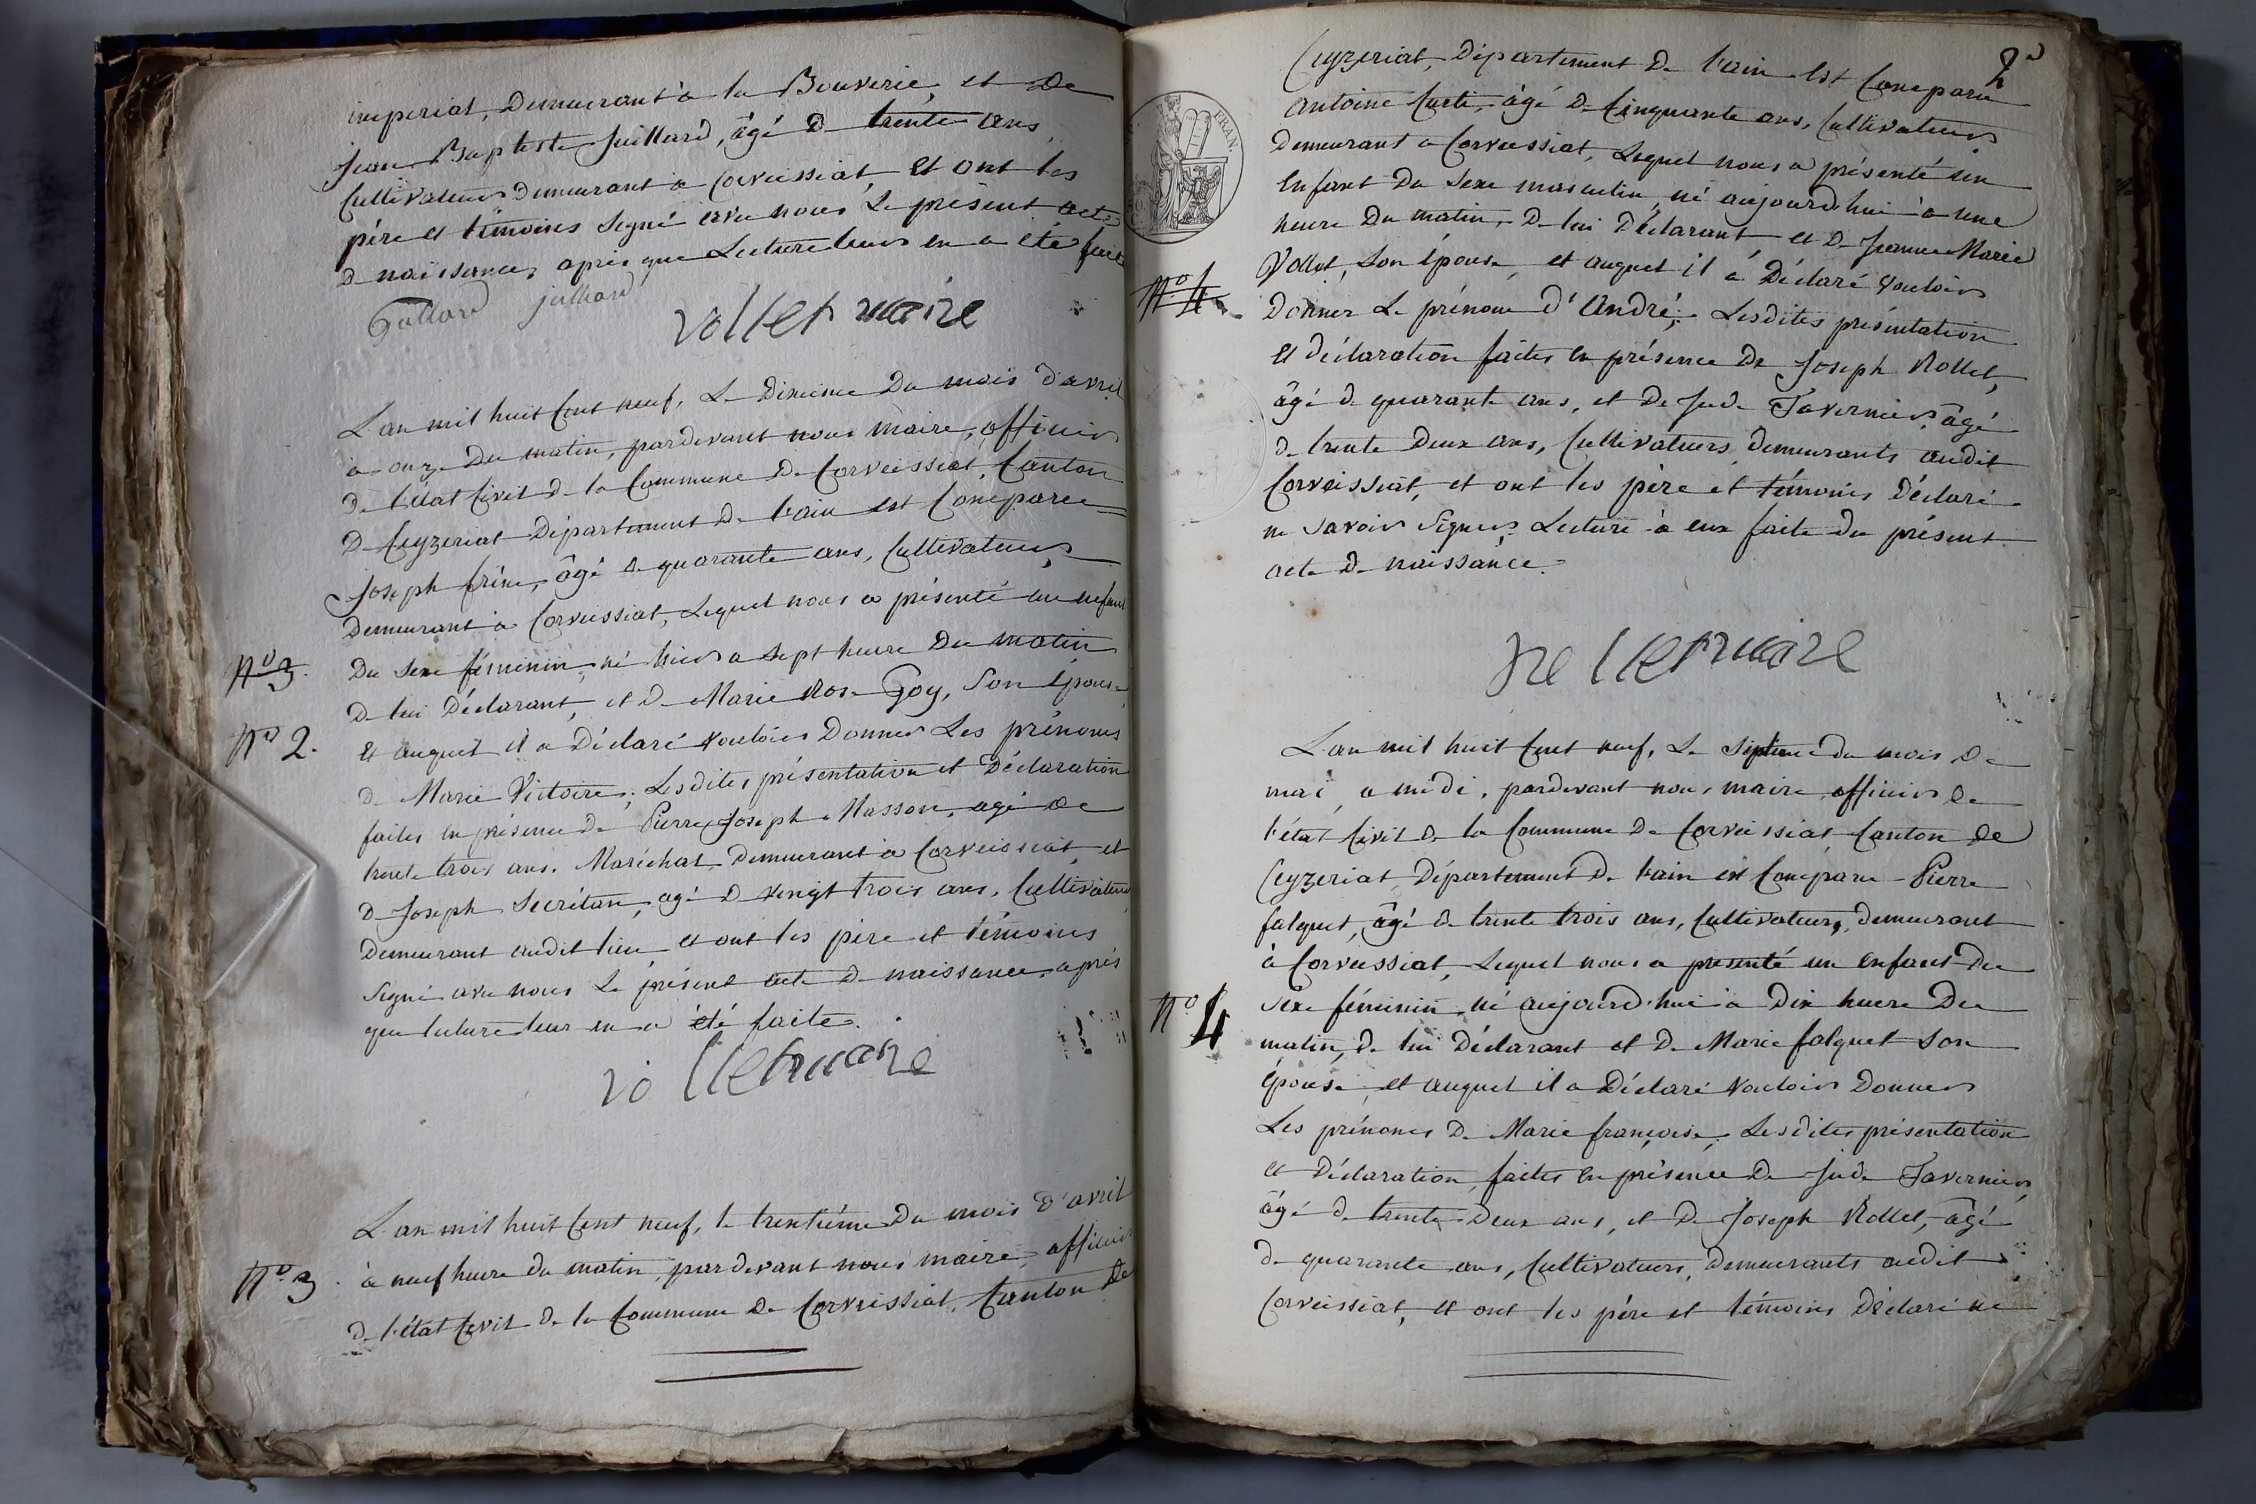 imperial, Demeurant à la Bouverie, et De
Jean Baptiste Juillard, âgé De trente ans,
Cultivateur Demeurant à Corveissiat, et ont les
père et témoins Signé avec nous Le présent acte
De naissance, après que Lecture leur en a été faite
juillard
vollet maire
L'an mil huit Cent neuf, Le Dixième Du mois d'avril
à onze Du matin, pardevant nous maire, officier
De l'état Civil De la Commune De Corveissiat, Canton
De Ceyzeriat Département De l'ain est Comparu
Joseph frène, âgé De quarante ans, Cultivateur
Demeurant à Corveissiat, Lequel nous a présenté un enfant
N° 3.
Du Sexe féminin, né hier a Sept heure Du matin
De lui Déclarant, et De Marie Rose Goy, Son Epouse,
N° 2.
et auquel il a Déclaré Vouloir Donner Les prénoms
De Marie Victoire; Lesdites présentation et Déclaration
faites en présence De Pierre Joseph Masson, agé De
trente trois ans, Maréchal Demeurant a Corveissiat, et
De Joseph Secrétan, agé De Vingt trois ans, Cultivateur
Demeurant audit lieu, et ont les père et témoins
Signé avec nous Le présent acte De naissance, après
que lecture leur en a été faite.
vollet maire
L'an mil huit Cent neuf, le trentième Du mois D'avril
N° 3
à neuf heure du matin, pardevant nous maire, officier
De l'état Civil De la Commune De Corveissiat, Canton De
2
Ceyzeriat, Département De l'ain Est Comparu
antoine Curti, âgé De Cinquante ans, Cultivateur
FRAN.
Demeurant a Corveissiat, Lequel nous a présenté un
Enfant Du Sexe masculin, né aujourd'hui à une
heure Du matin, De lui Déclarant, et De Jeanne Marie
Vollet, Son épouse, et auquel il a Déclaré Vouloir
N° 4
Donner Le prénom d'André; Lesdites présentation
et déclaration faites en présence De Joseph Rollet,
âgé de quarante ans, et De Jude Tavernier, âgé
de trente Deux ans, Cultivateurs Demeurants audit
Corveissiat, et ont les père et témoins Déclaré
ne Savoir Signer Lecture à eux faite du présent
acte De naissance.
vollet maire
L'an mil huit Cent neuf, Le Septieme du mois De
mai, a midi, pardevant nous maire officier De
l'état Civil De la Commune De Corveissiat Canton De
Ceyzeriat Département De l'ain est Comparu Pierre
falquet, âgé de trente trois ans, Cultivateur, Demeurant
à Corveissiat, Lequel nous a presenté un Enfant Du
N° 4
Sexe féminin, né aujourd'hui à Dix heure Du
matin, De lui Déclarant et De Marie falquet Son
épouse, et auquel il a Déclaré Vouloir Donner
Les prénoms De Marie françoise. Lesdites présentation
et Déclaration faites En présence De Jude Tavernier,
âgé De trente Deux ans, et De Joseph Rollet, âgé
De quarante ans, Cultivateurs, Demeurants audit
Corveissiat, et ont les père et témoins Déclaré ne